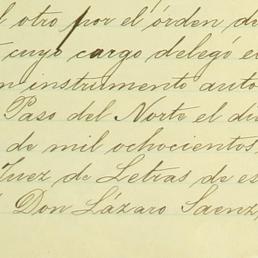 l otro por el órden d
cuyo cargo delegó e
n instrumento auto
Paso del Norte el di
de mil ochocientos
Juez de Letras de es
Don Lázaro Saenz,